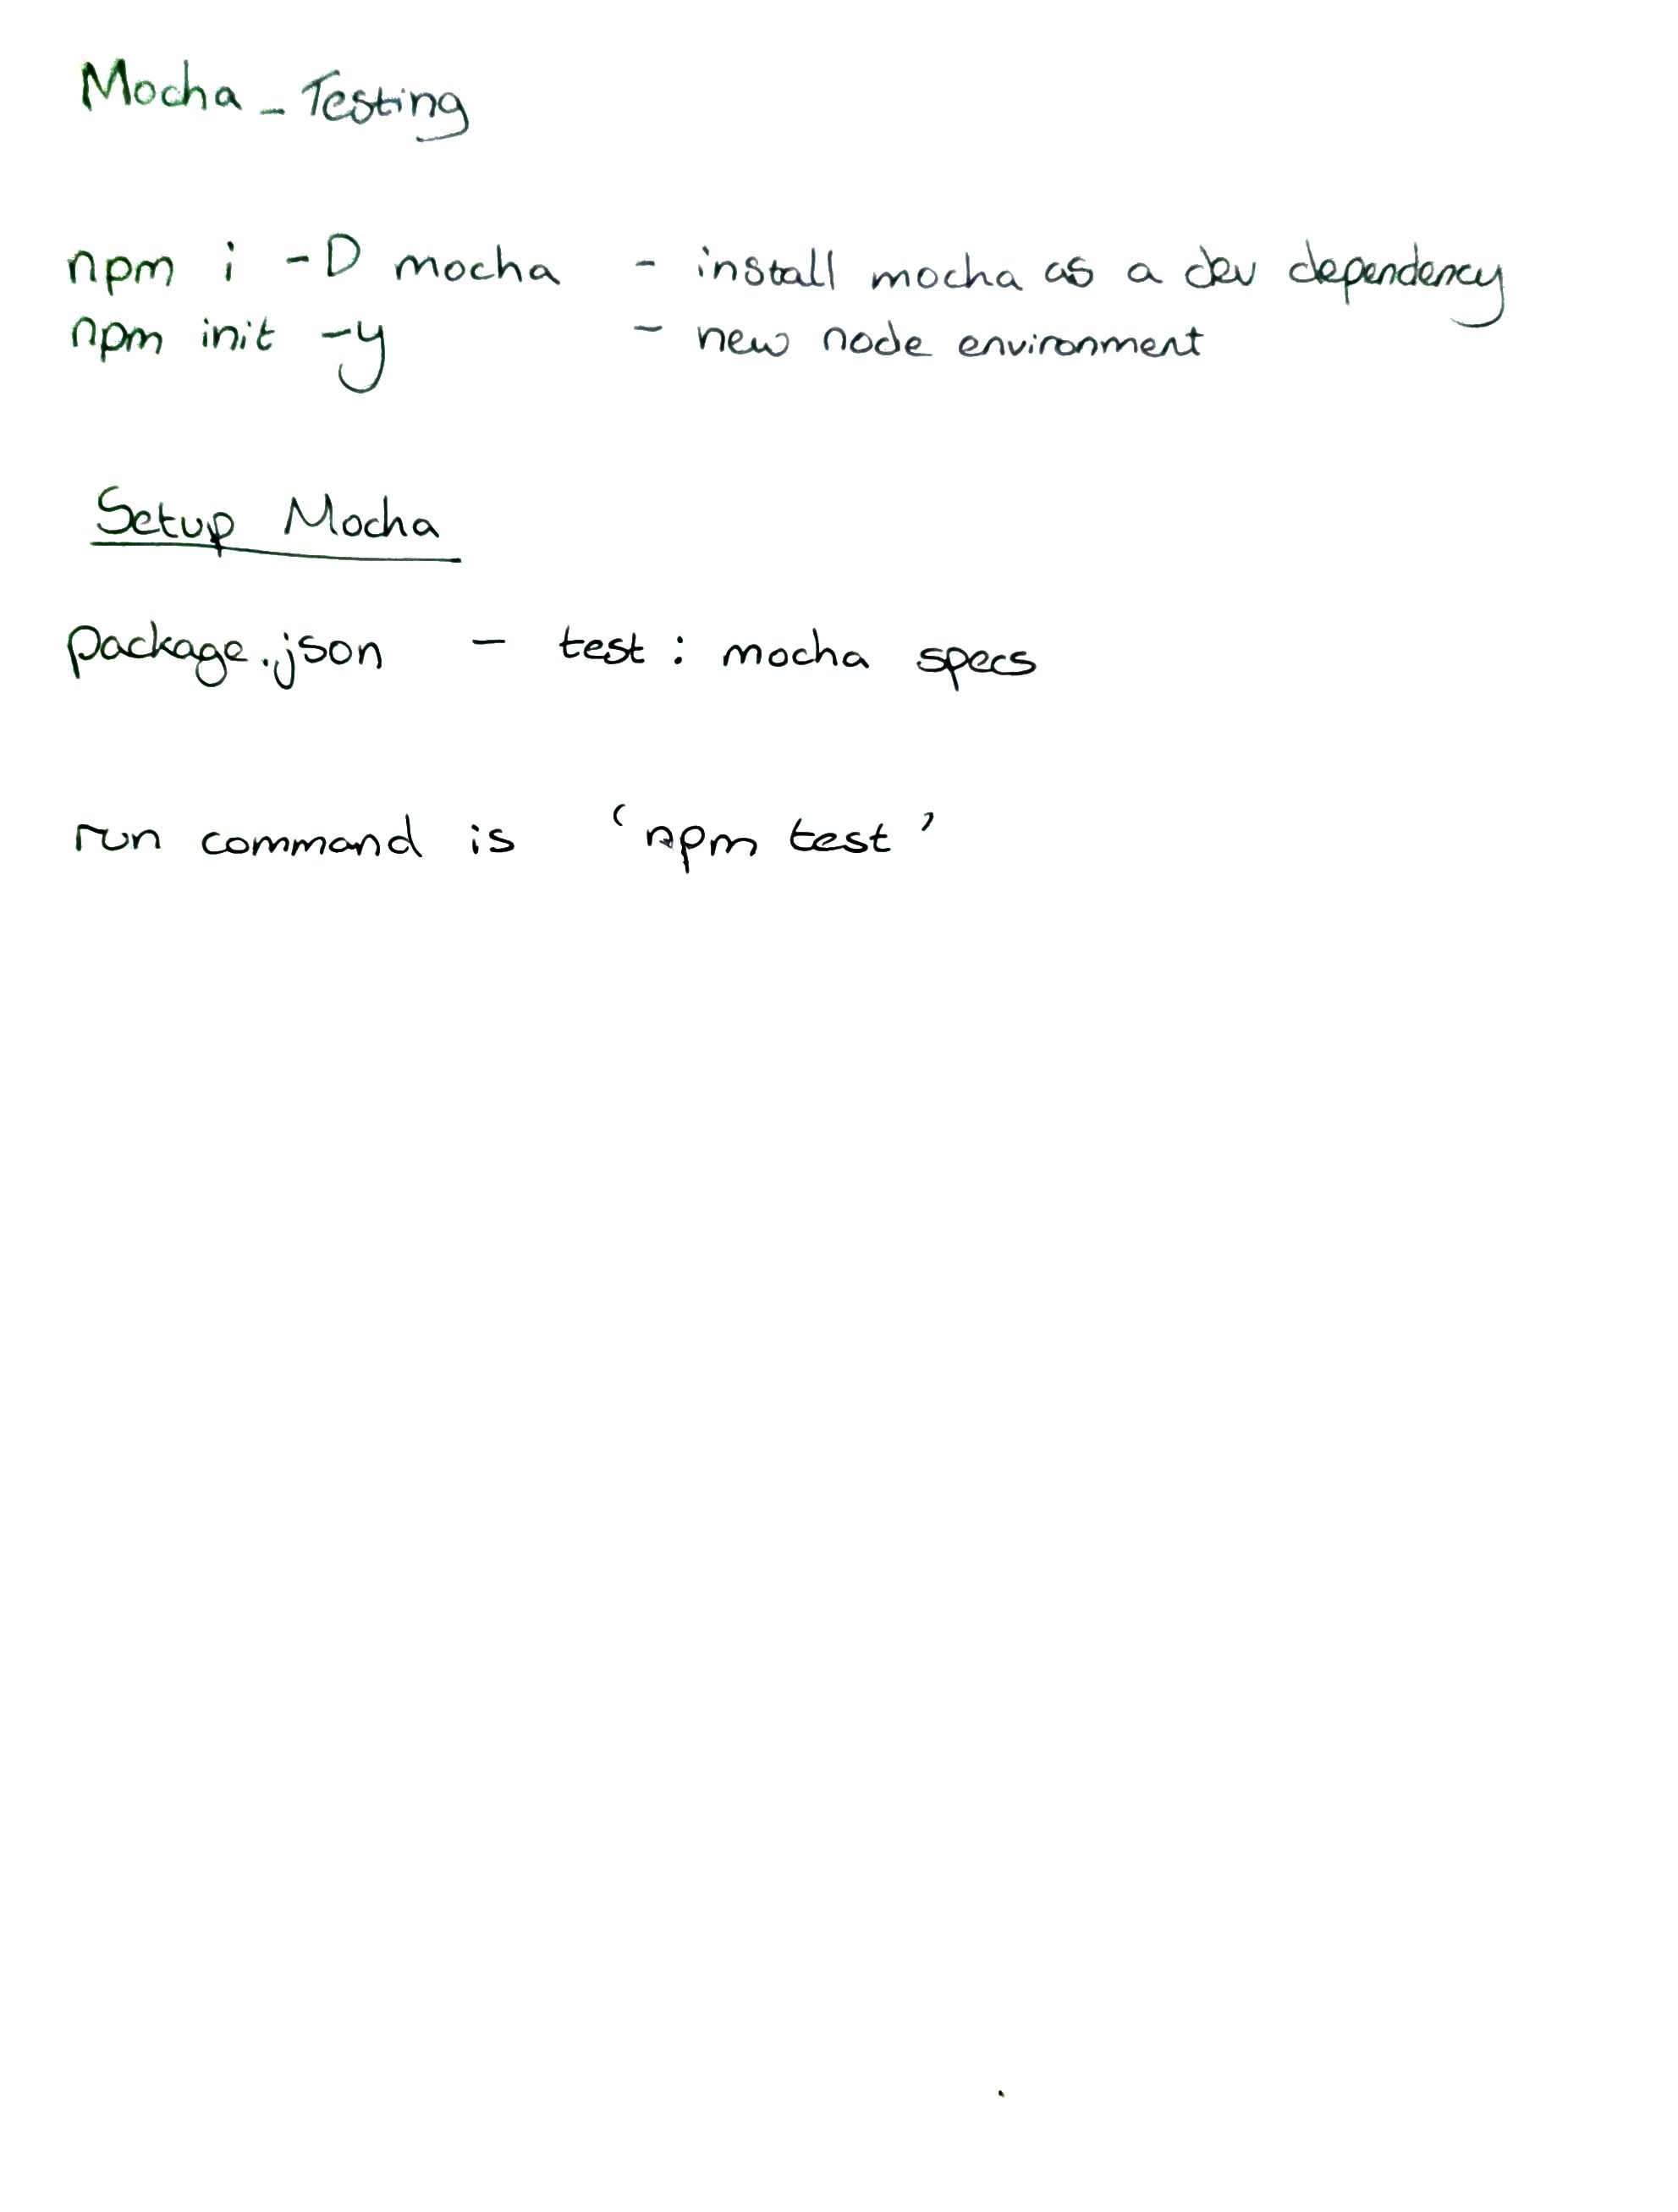 Mocha - Testing
npm i -D mocha - install mocha as a dev dependency
npm init -y - new node environment
Setup Mocha
package.json - test: mocha specs
run command is 'npm test'